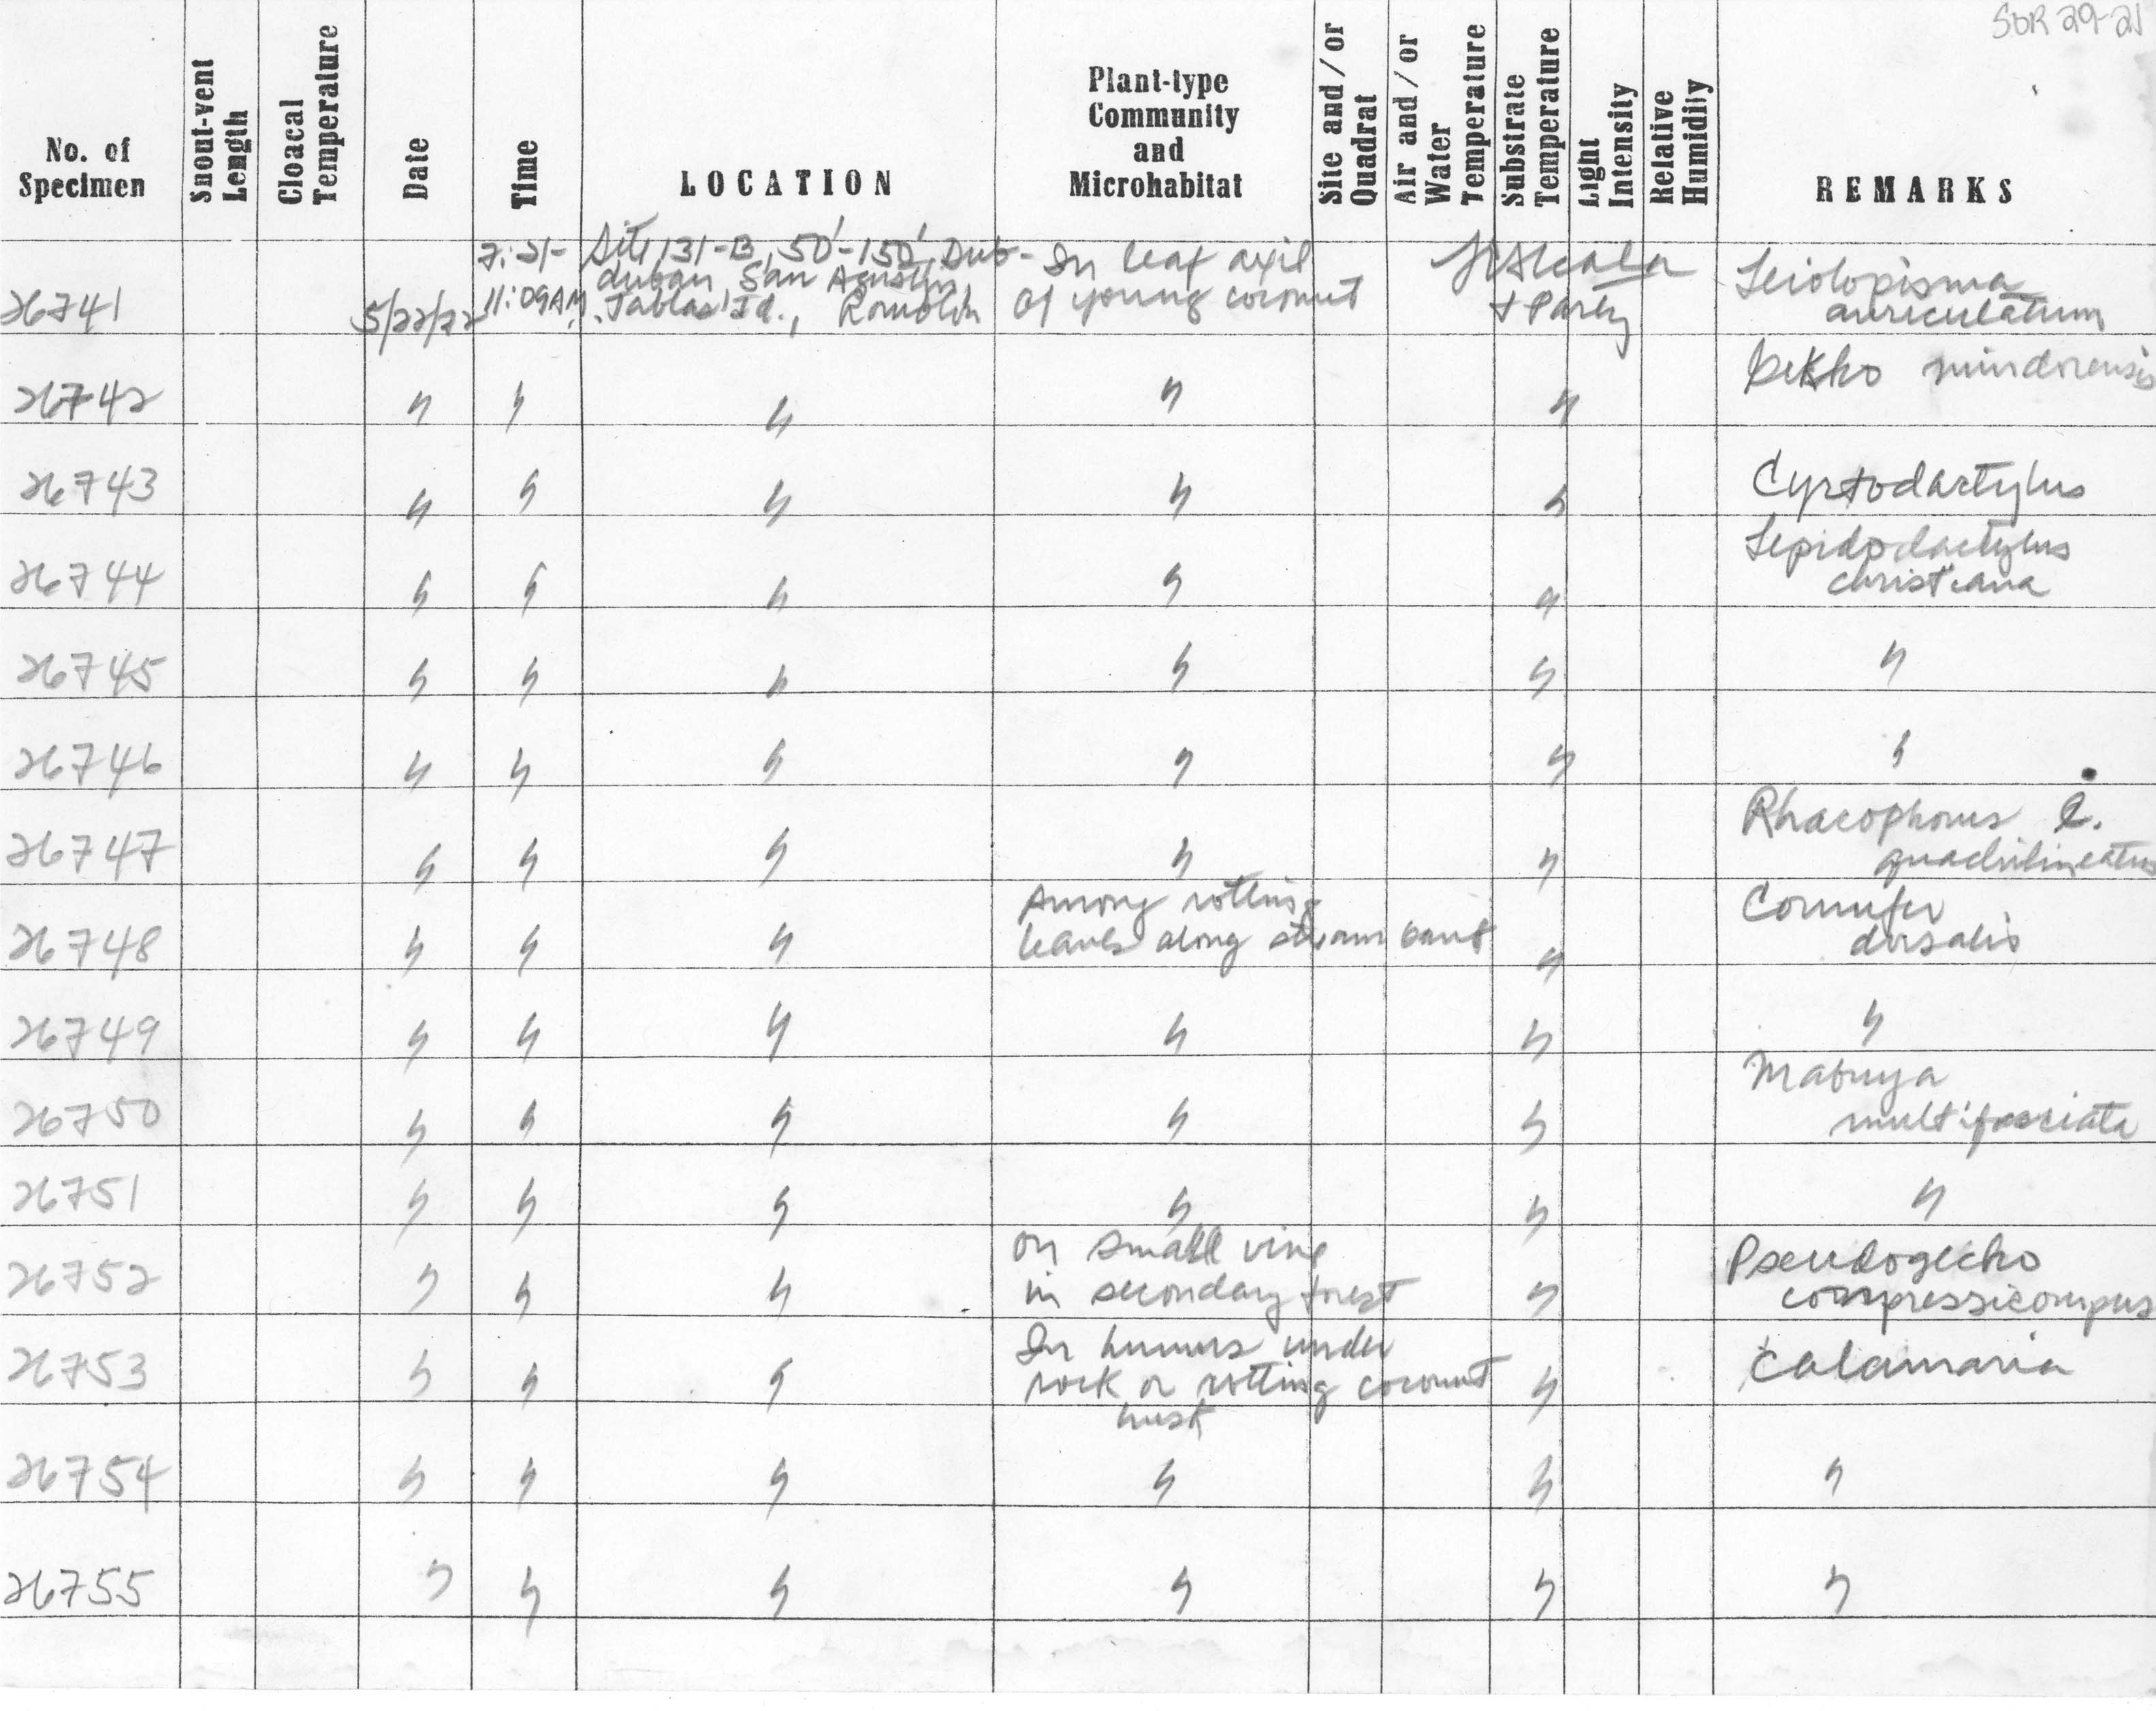 SDR 29-21
No. of Specimen Snout-vent Length Cloacal Temperature Date Time LOCATION Plant-type Community and Microhabitat Site and/or Quadrat Air and/or Water Temperature Substrate Temperature Light Intensity Relative Humidity REMARKS
26741 5/22/72 7:21-11:09AM Site 131-B, 50'-150', Dubduban, San Agustin, Tablas Id., Romblon In leaf axil of young coconut Alcala & Party Leiolopisma auriculatum
26742 " " " " " Gekko mindorensis
26743 " " " " " Cyrtodactylus
26744 " " " " " Lepidodactylus christiana
26745 " " " " " "
26746 " " " " " "
26747 " " " " " Rhacophorus l. quadrilineatus
26748 " " " Among rotting leaves along stream bank " Cornufer dorsalis
26749 " " " " " "
26750 " " " " " Mabuya multifasciata
26751 " " " " " "
26752 " " " on small vine in secondary forest " Pseudogecko compressicorpus
26753 " " " In humus under rock or rotting coconut husk " Calamaria
26754 " " " " " "
26755 " " " " " "